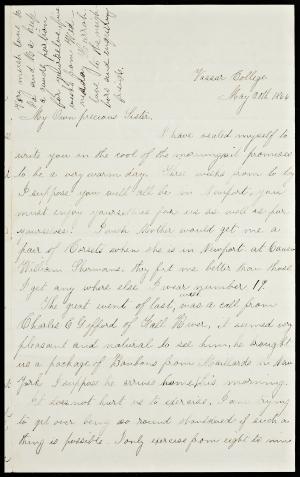 Vassar College
May 1866
My Own precious Sister,
I have seated myself to
write you in the cool of the morning it promises
to be a very warm day. Three weeks from to day
I suppose you will all be in Newport, you
must enjoy yourselves for us as well as for
yourselves! I wish Mother would get me a
pair of Corsets when she is in Newport at
William Shermans. they fit me better than those
I get any where else I wear number 19.
The great event of last week was a call from
Charles E Gifford of Fall River, it seemed very
pleasant and natural to see him, he brought
us a package of Bonbons from Maillards in New
York I suppose he arrives home this morning.
It does not hurt us to exercise, I am trying
to get over being so round shouldered if such a
thing is possible. I only exercise from eight to nine
Very much love to
Pa and Ma
a goodly portion
for yourselves
from
love to the neigh
bors and enquiring
friends.